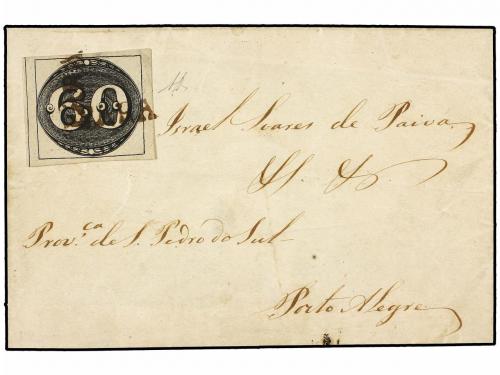 60
Israel Soares de Paiva
Prov.ca de S. Pedro do Sul
Porto Alegre